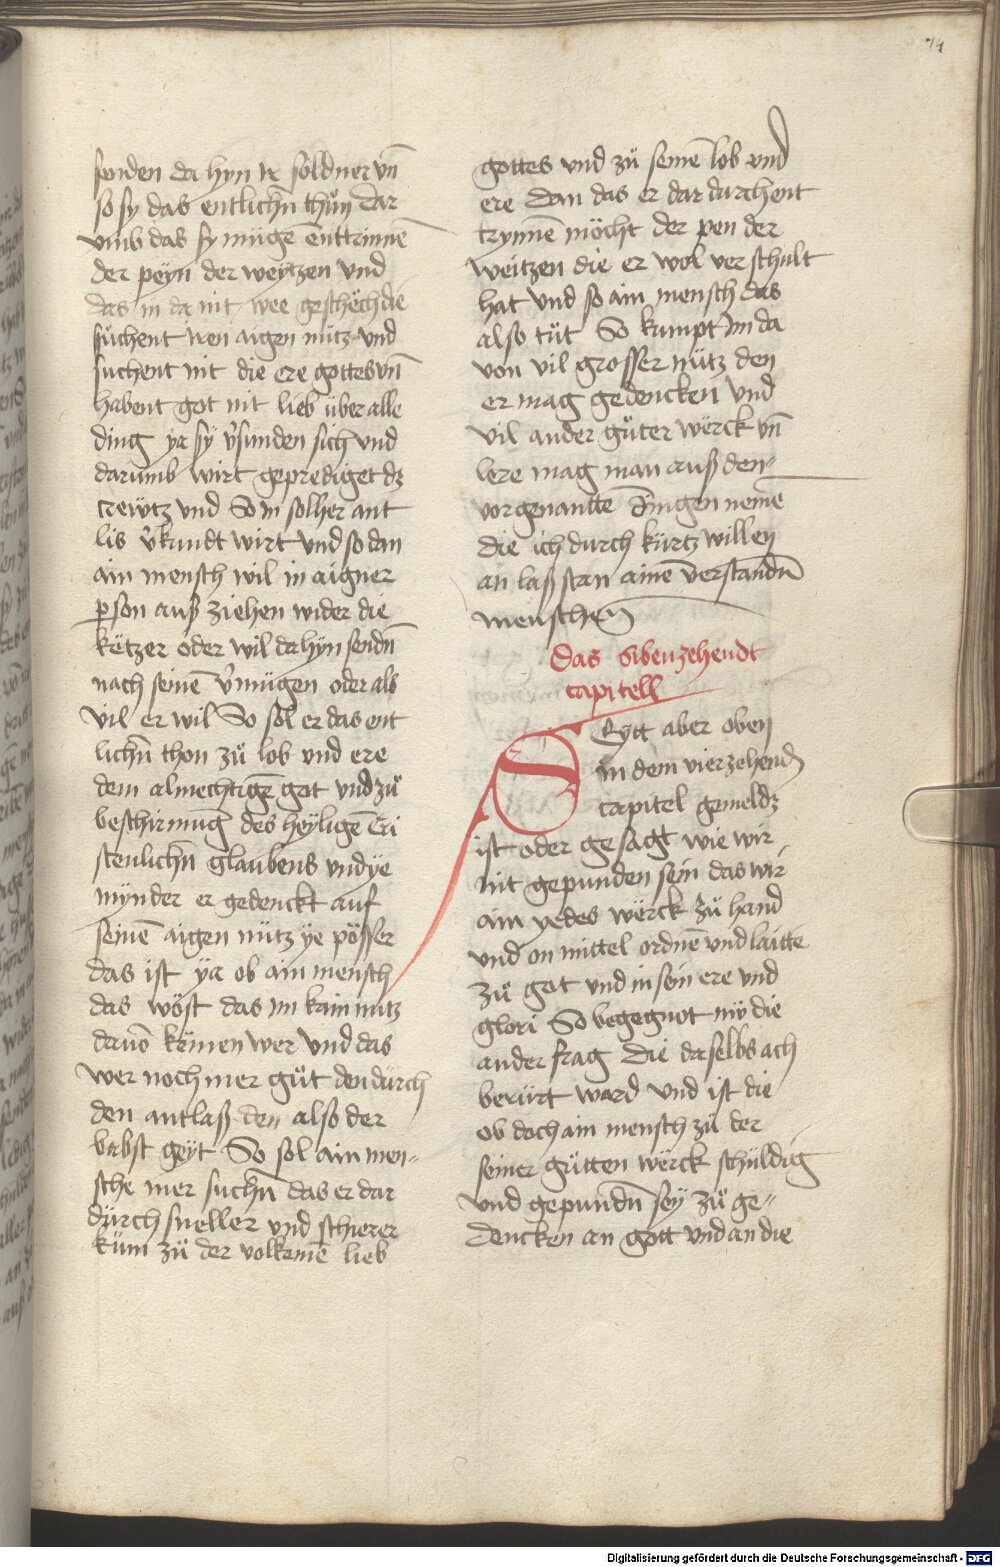 74
senden da hyn ir söldner vn̄
so sy das entlichn̄ thůn dar
vmb das sy mügē enttrinnē
der peyn der weytzen vnd
das in da nit wee geschech die
süchent iren aigen nütz vnd
suchent nit die ere gottes vn̄
habent got nit lieb über alle
ding ya sy v̉sunden sich vnd
darumb wirt geprediget dz
crewtz vnd So in solher ant
lis v̉kundt wirt vnd so dan
ain mensch wil in aigner
ꝑson auß ziehen wider die
ketzer oder wil da hyn sendn̄
nach seinē v̉mügen oder als
vil er wil So sol er das ent
lichn̄ thon zů lob vnd ere
dem almechtigē got vnd zů
beschirmung des heyligē Cri
stenlichn̄ glaubens vnd ye
mynder er gedenckt auf
seinē aigen nütz ye pösser
das ist ya ob ain mensch
das wöst das im kain nutz
dauō kemen wer vnd das
wer noch mer gůt den dürch
den antlaß den also der
babst geyt So sol ain men-
sche mer suchn̄ das er dar
dürch sneller vnd schierer
küm zů der volkemē lieb
gottes vnd zů seinē lob vnd
ere dan das er dar durch ent
trynnē möcht der pen der
weitzen die er wol verschult
hat vnd so ain mensch das
also tůt So kumpt im da
von vil grosser nütz den
er mag gedencken vnd
vil ander güter werck vn̄
lere mag man auß den
vorgenantte dingen nemē
die ich durch kürtz willen
an laß stan ainē verstandn̄
menschen
Das sibenzehendt
capitell
Sytt aber oben
in dem vierzehend
capitel gemeldz
ist oder gesagt wie wir
nit gepunden sein das wir
ain yedes werck zů hand
vnd on mittel ordnē vnd laitte
zů got vnd in sein ere vnd
glori So begegnot mir die
ander frag die daselbs ach
berürt ward vnd ist die
ob doch ain mensch zů der
seiner gůtten werck schüldig
vnd gepundn̄ sey zů ge-
dencken an gott vnd an die
Digitalisierung gefördert durch die Deutsche Forschungsgemeinschaft - DFG